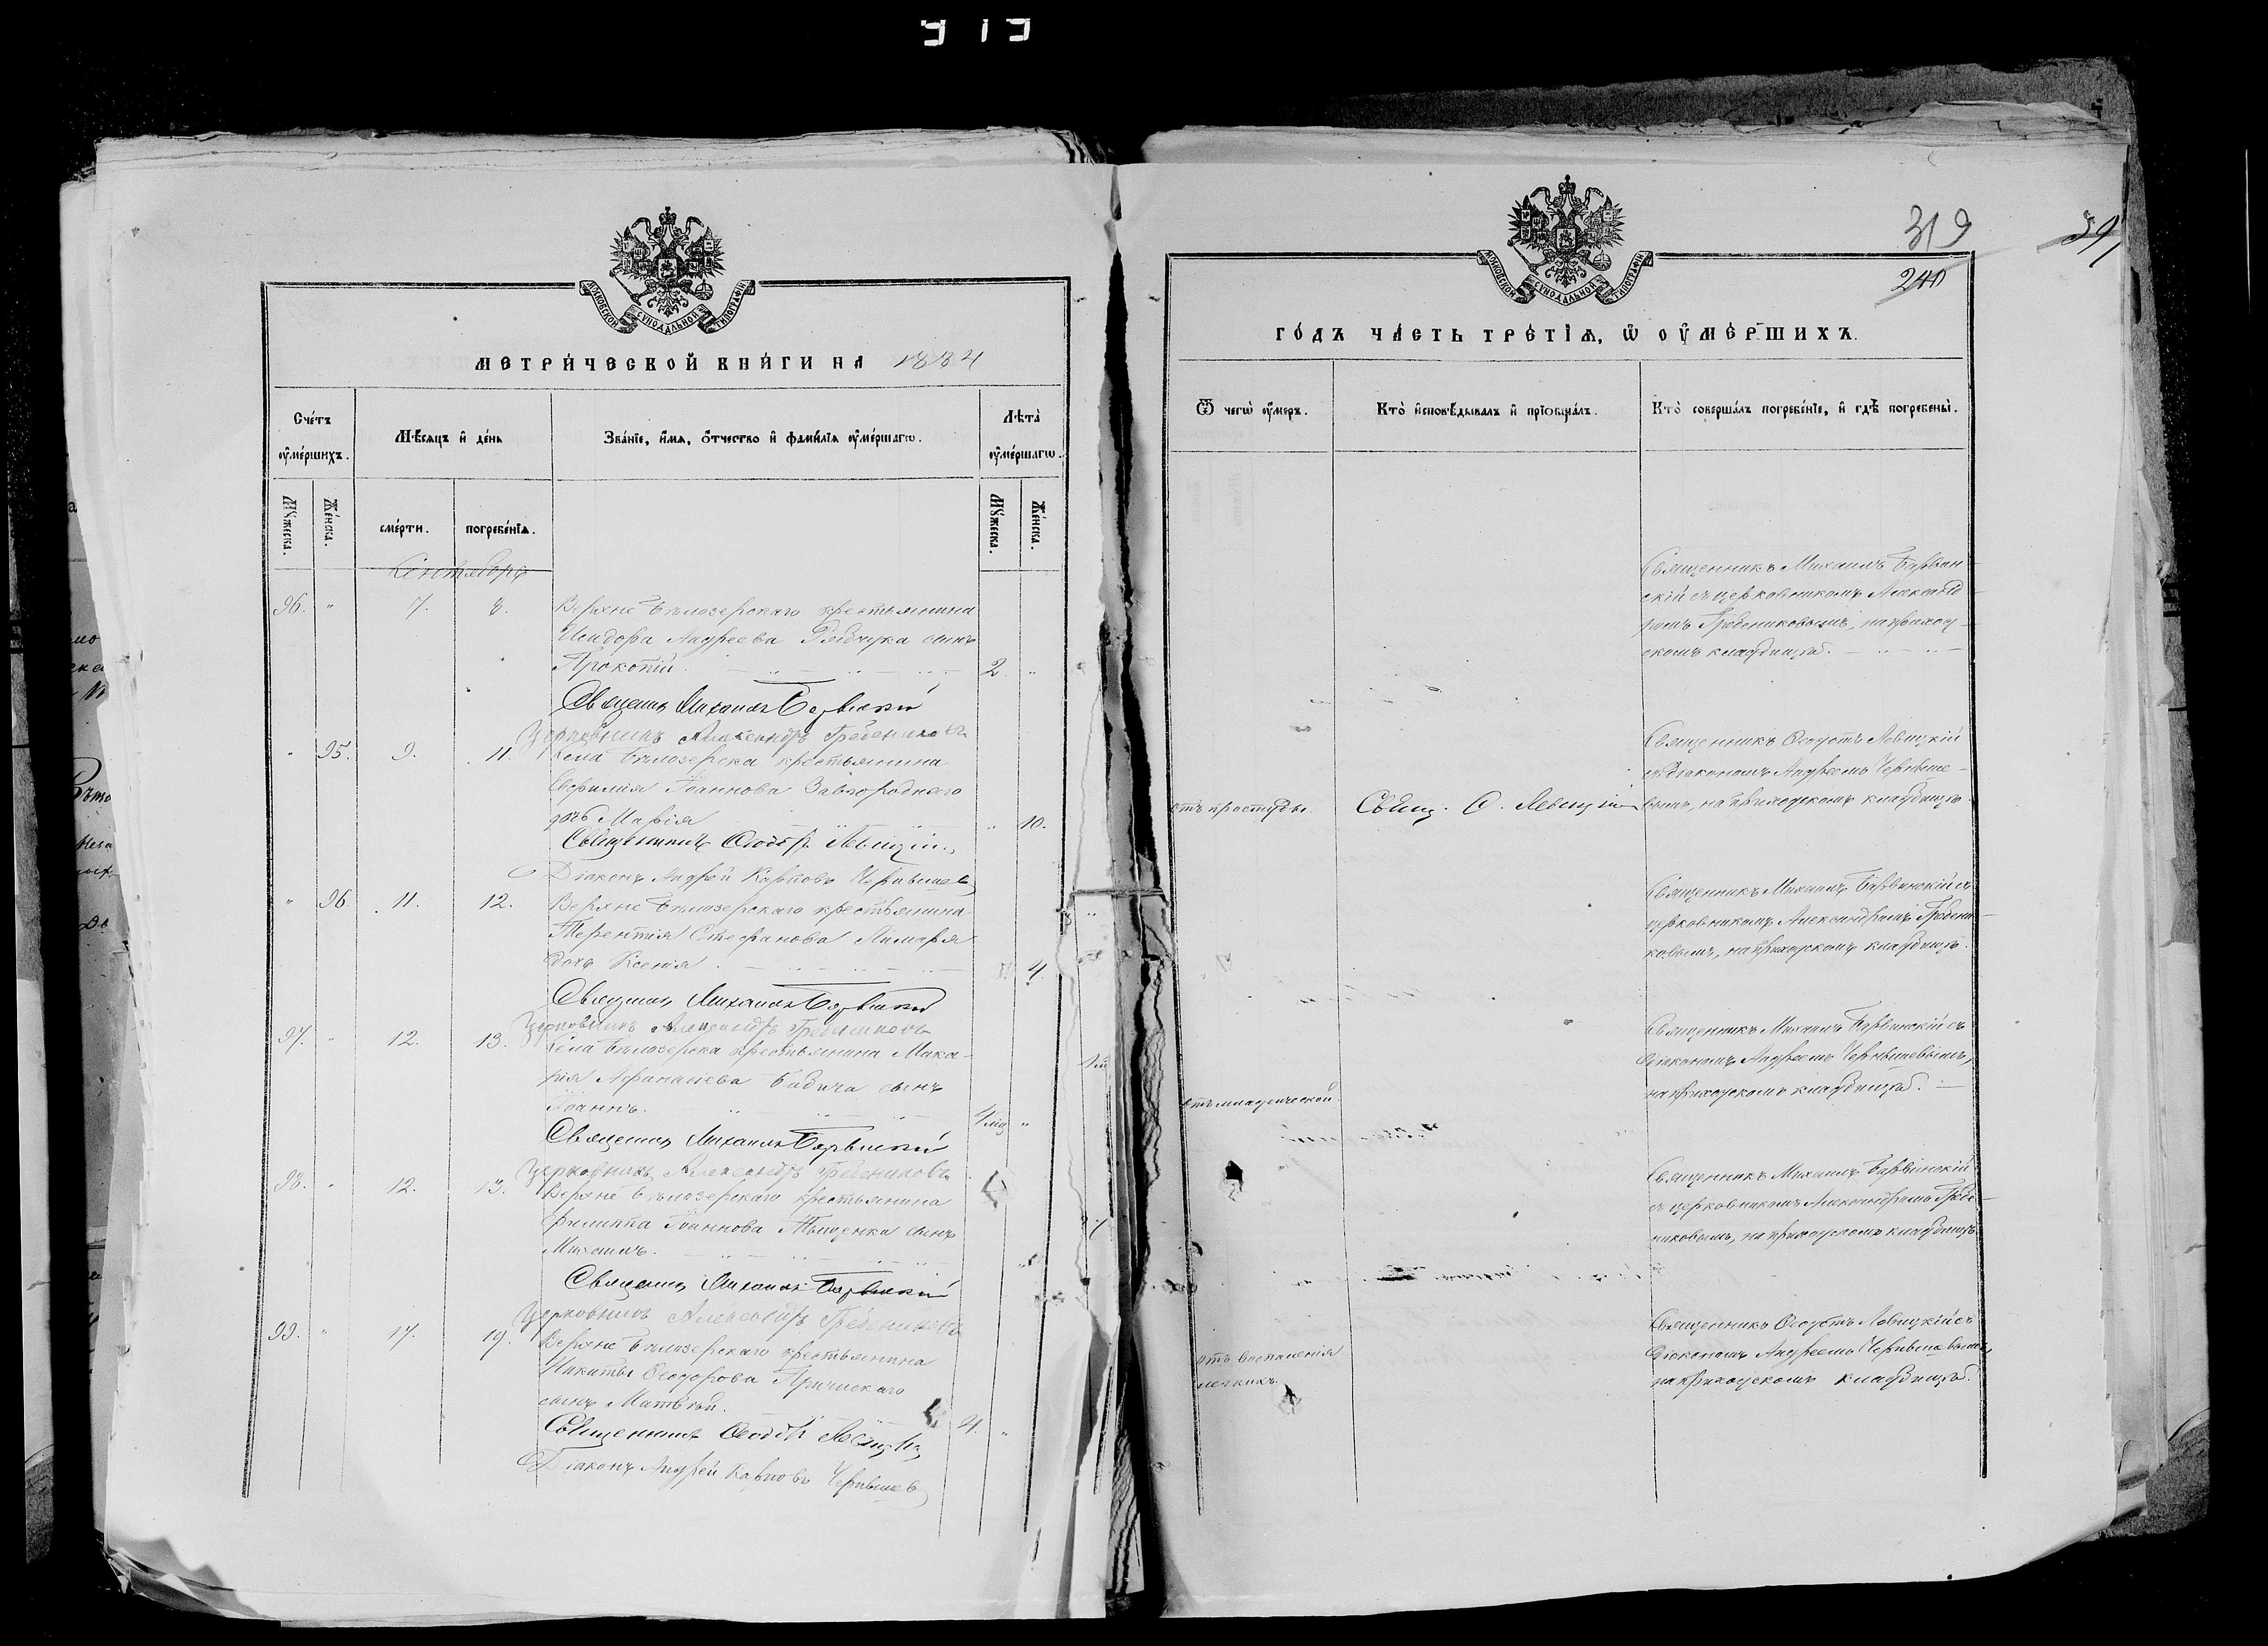 319
МОСКОВСКОЙ СѴНОДАЛЬНОЙ ТИПОГРАФІИ
МЕТРИ́ЧЕСКОЙ КНИ́ГИ НА 1884
Сче́тъ ᲂу҆ме́ршихъ.
Мѣ́сяцъ и҆ де́нь
Зва́нїе, и҆́мя, ѻ҆́тчество и҆ фами́лїя ᲂу҆ме́ршагѡ.
Лѣ́та ᲂу҆ме́ршагѡ.
Мꙋ́жеска.
Же́нска.
сме́рти.
погребе́нїя.
Мꙋ́жеска.
Же́нска.
Сентябрь
96. " 7. 8. Верхне Бѣлозерскаго крестьянина
Исидора Андреева Рябчука сынъ
Прокопій. 2 "
Священникъ Михаилъ Барвинскій
Церковникъ Александръ Гребениковъ
" 95. 9. 11. Села Бѣлозерска крестьянина
Іоаннова Завгороднего
дочь Марія " 10.
Священникъ Ѳеодотъ Левицкій
Діаконъ Андрей Карповъ Чернышевъ
" 96. 11. 12. Верхне Бѣлозерскаго крестьянина
Терентія Стефанова Лимаря
дочь Ксенія. " 4.
Священникъ Михаилъ Барвинскій
Церковникъ Александръ Гребениковъ
97. " 12. 13. Села Бѣлозерска крестьянина Мака-
рія Афанасіева Бабича сынъ
Іоаннъ. 4 "
Священникъ Михаилъ Барвинскій
Церковникъ Александръ Гребениковъ
98. " 12. 13. Верхне Бѣлозерскаго крестьянина
Филиппа Іоаннова Тищенка сынъ
Михаилъ.
Священникъ Михаилъ Барвинскій
Церковникъ Александръ Гребениковъ
99. " 17. 19. Верхне Бѣлозерскаго крестьянина
Никиты Ѳеодорова
сынъ Матвѣй. 4. "
Священникъ Ѳеодотъ Левицкій
Діаконъ Андрей Карповъ Чернышевъ
МОСКОВСКОЙ СѴНОДАЛЬНОЙ ТИПОГРАФІИ
319
240
ГО́ДЪ ЧА́СТЬ ТРЕ́ТІѦ, Ѡ҆ ОУ҆МЕ́РШИХЪ.
Ѿ чегѡ̀ ᲂу҆́меръ.
Кто̀ и҆сповѣ́дывалъ и҆ прїѡбща́лъ.
Кто̀ соверша́лъ погребе́нїе, и҆ гдѣ̀ погребены̀.
Священникъ Михаилъ Барвин-
скій съ церковникомъ Александ-
ромъ Гребениковымъ, на приход-
скомъ кладбищѣ.
отъ простуды. Свящ. Ѳ. Левицкій
Священникъ Ѳеодотъ Левицкій
съ діакономъ Андреемъ Черныше-
вымъ, на приходскомъ кладбищѣ.
Священникъ Михаилъ Барвинскій съ
церковникомъ Александромъ Гребени-
ковымъ, на приходскомъ кладбищѣ.
отъ младенческой
Священникъ Михаилъ Барвинскій съ
діакономъ Андреемъ Чернышевымъ,
на приходскомъ кладбищѣ.
Священникъ Михаилъ Барвинскій
съ церковникомъ Александромъ Гребе-
никовымъ, на приходскомъ кладбищѣ.
отъ воспаленія
легкихъ.
Священникъ Ѳеодотъ Левицкій съ
діакономъ Андреемъ Чернышевымъ
на приходскомъ кладбищѣ.